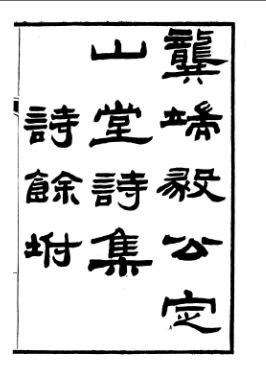 龔端毅公定
山堂詩集
詩餘坿